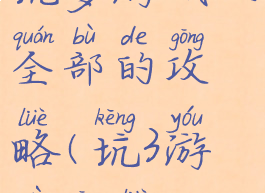 quán bù de gōng
全部的攻
lüè kēng yóu
略(坑3游